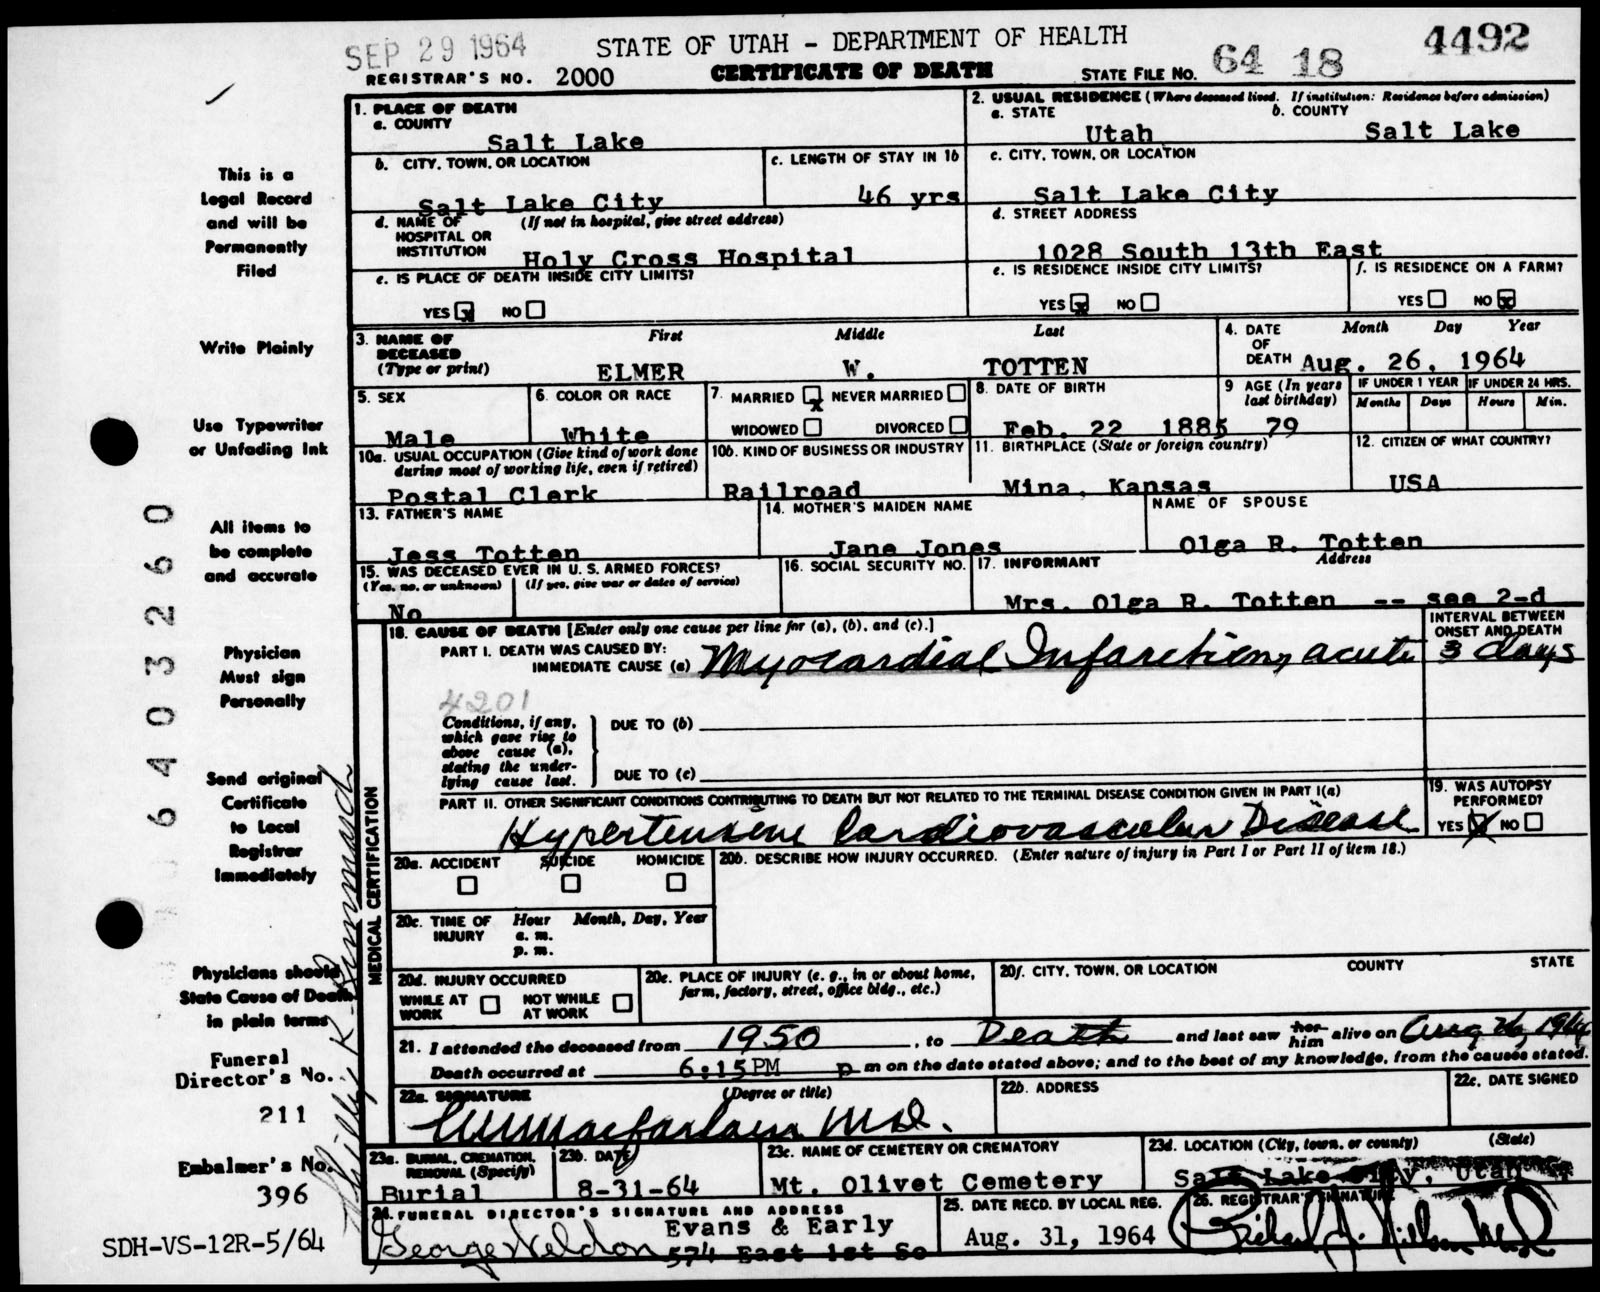 SEP 29 1964
STATE OF UTAH - DEPARTMENT OF HEALTH
4492
REGISTRAR'S NO. 2000
CERTIFICATE OF DEATH
STATE FILE NO. 64 18
1. PLACE OF DEATH
a. COUNTY
Salt Lake
2. USUAL RESIDENCE (Where deceased lived. If institution: Residence before admission)
a. STATE
Utah
b. COUNTY
Salt Lake
b. CITY, TOWN, OR LOCATION
Salt Lake City
c. LENGTH OF STAY IN 1b
46 yrs
c. CITY, TOWN, OR LOCATION
Salt Lake City
d. NAME OF HOSPITAL OR INSTITUTION
(If not in hospital, give street address)
Holy Cross Hospital
d. STREET ADDRESS
1028 South 13th East
e. IS PLACE OF DEATH INSIDE CITY LIMITS?
YES x NO
e. IS RESIDENCE INSIDE CITY LIMITS?
YES x NO
f. IS RESIDENCE ON A FARM?
YES NO x
3. NAME OF DECEASED (Type or print)
First Middle Last
ELMER W. TOTTEN
4. DATE OF DEATH
Month Day Year
Aug. 26, 1964
5. SEX
Male
6. COLOR OR RACE
White
7. MARRIED x NEVER MARRIED
WIDOWED DIVORCED
8. DATE OF BIRTH
Feb. 22 1885
9 AGE (In years last birthday)
79
IF UNDER 1 YEAR
Months Days
IF UNDER 24 HRS.
Hours Min.
10a. USUAL OCCUPATION (Give kind of work done during most of working life, even if retired)
Postal Clerk
10b. KIND OF BUSINESS OR INDUSTRY
Railroad
11. BIRTHPLACE (State or foreign country)
Mina, Kansas
12. CITIZEN OF WHAT COUNTRY?
USA
13. FATHER'S NAME
Jess Totten
14. MOTHER'S MAIDEN NAME
Jane Jones
NAME OF SPOUSE
Olga R. Totten
15. WAS DECEASED EVER IN U. S. ARMED FORCES?
(Yes, no, or unknown) (If yes, give war or dates of service)
No
16. SOCIAL SECURITY NO.
17. INFORMANT
Address
Mrs. Olga R. Totten -- see 2-d
MEDICAL CERTIFICATION
18. CAUSE OF DEATH [Enter only one cause per line for (a), (b), and (c).]
INTERVAL BETWEEN ONSET AND DEATH
PART I. DEATH WAS CAUSED BY:
IMMEDIATE CAUSE (a) Myocardial Infarction, acute 3 days
4201
Conditions, if any, which gave rise to above cause (a), stating the underlying cause last.
DUE TO (b)
DUE TO (c)
PART II. OTHER SIGNIFICANT CONDITIONS CONTRIBUTING TO DEATH BUT NOT RELATED TO THE TERMINAL DISEASE CONDITION GIVEN IN PART I(a)
Hypertensive Cardiovascular Disease
19. WAS AUTOPSY PERFORMED?
YES X NO
20a. ACCIDENT SUICIDE HOMICIDE
20b. DESCRIBE HOW INJURY OCCURRED. (Enter nature of injury in Part I or Part II of item 18.)
20c. TIME OF INJURY
Hour Month, Day, Year
a. m.
p. m.
20d. INJURY OCCURRED
WHILE AT WORK NOT WHILE AT WORK
20e. PLACE OF INJURY (e. g., in or about home, farm, factory, street, office bldg., etc.)
20f. CITY, TOWN, OR LOCATION COUNTY STATE
21. I attended the deceased from 1950, to Death and last saw her him alive on Aug 26, 1964
Death occurred at 6:15PM p m on the date stated above; and to the best of my knowledge, from the causes stated.
22a. SIGNATURE (Degree or title)
Macfarlane MD.
22b. ADDRESS
22c. DATE SIGNED
23a. BURIAL, CREMATION, REMOVAL (Specify)
Burial
23b. DATE
8-31-64
23c. NAME OF CEMETERY OR CREMATORY
Mt. Olivet Cemetery
23d. LOCATION (City, town, or county) (State)
Salt Lake City, Utah
24. FUNERAL DIRECTOR'S SIGNATURE AND ADDRESS
George Weldon
Evans & Early
574 East 1st So
25. DATE RECD. BY LOCAL REG.
Aug. 31, 1964
26. REGISTRAR'S SIGNATURE
This is a
Legal Record
and will be
Permanently
Filed
Write Plainly
Use Typewriter
or Unfading Ink
All items to
be complete
and accurate
Physician
Must sign
Personally
Send original
Certificate
to Local
Registrar
Immediately
Physicians should
State Cause of Death
in plain terms
Funeral
Director's No.
211
Embalmer's No.
396
SDH-VS-12R-5/64
6403260